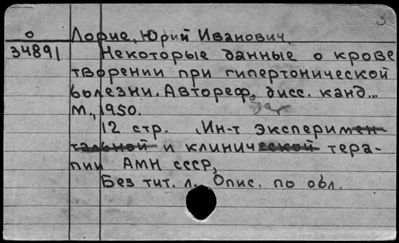 о Лорие, Юрий Иванович.
34891 Некоторые данные о крове
творении при гипертонической
болезни. Автореф. дисс. канд...
М., 1950.
12 стр. Ин-т эксперимен-
тальной и клинической тера-
пии АМН СССР,
Без тит. л. Опис. по обл.